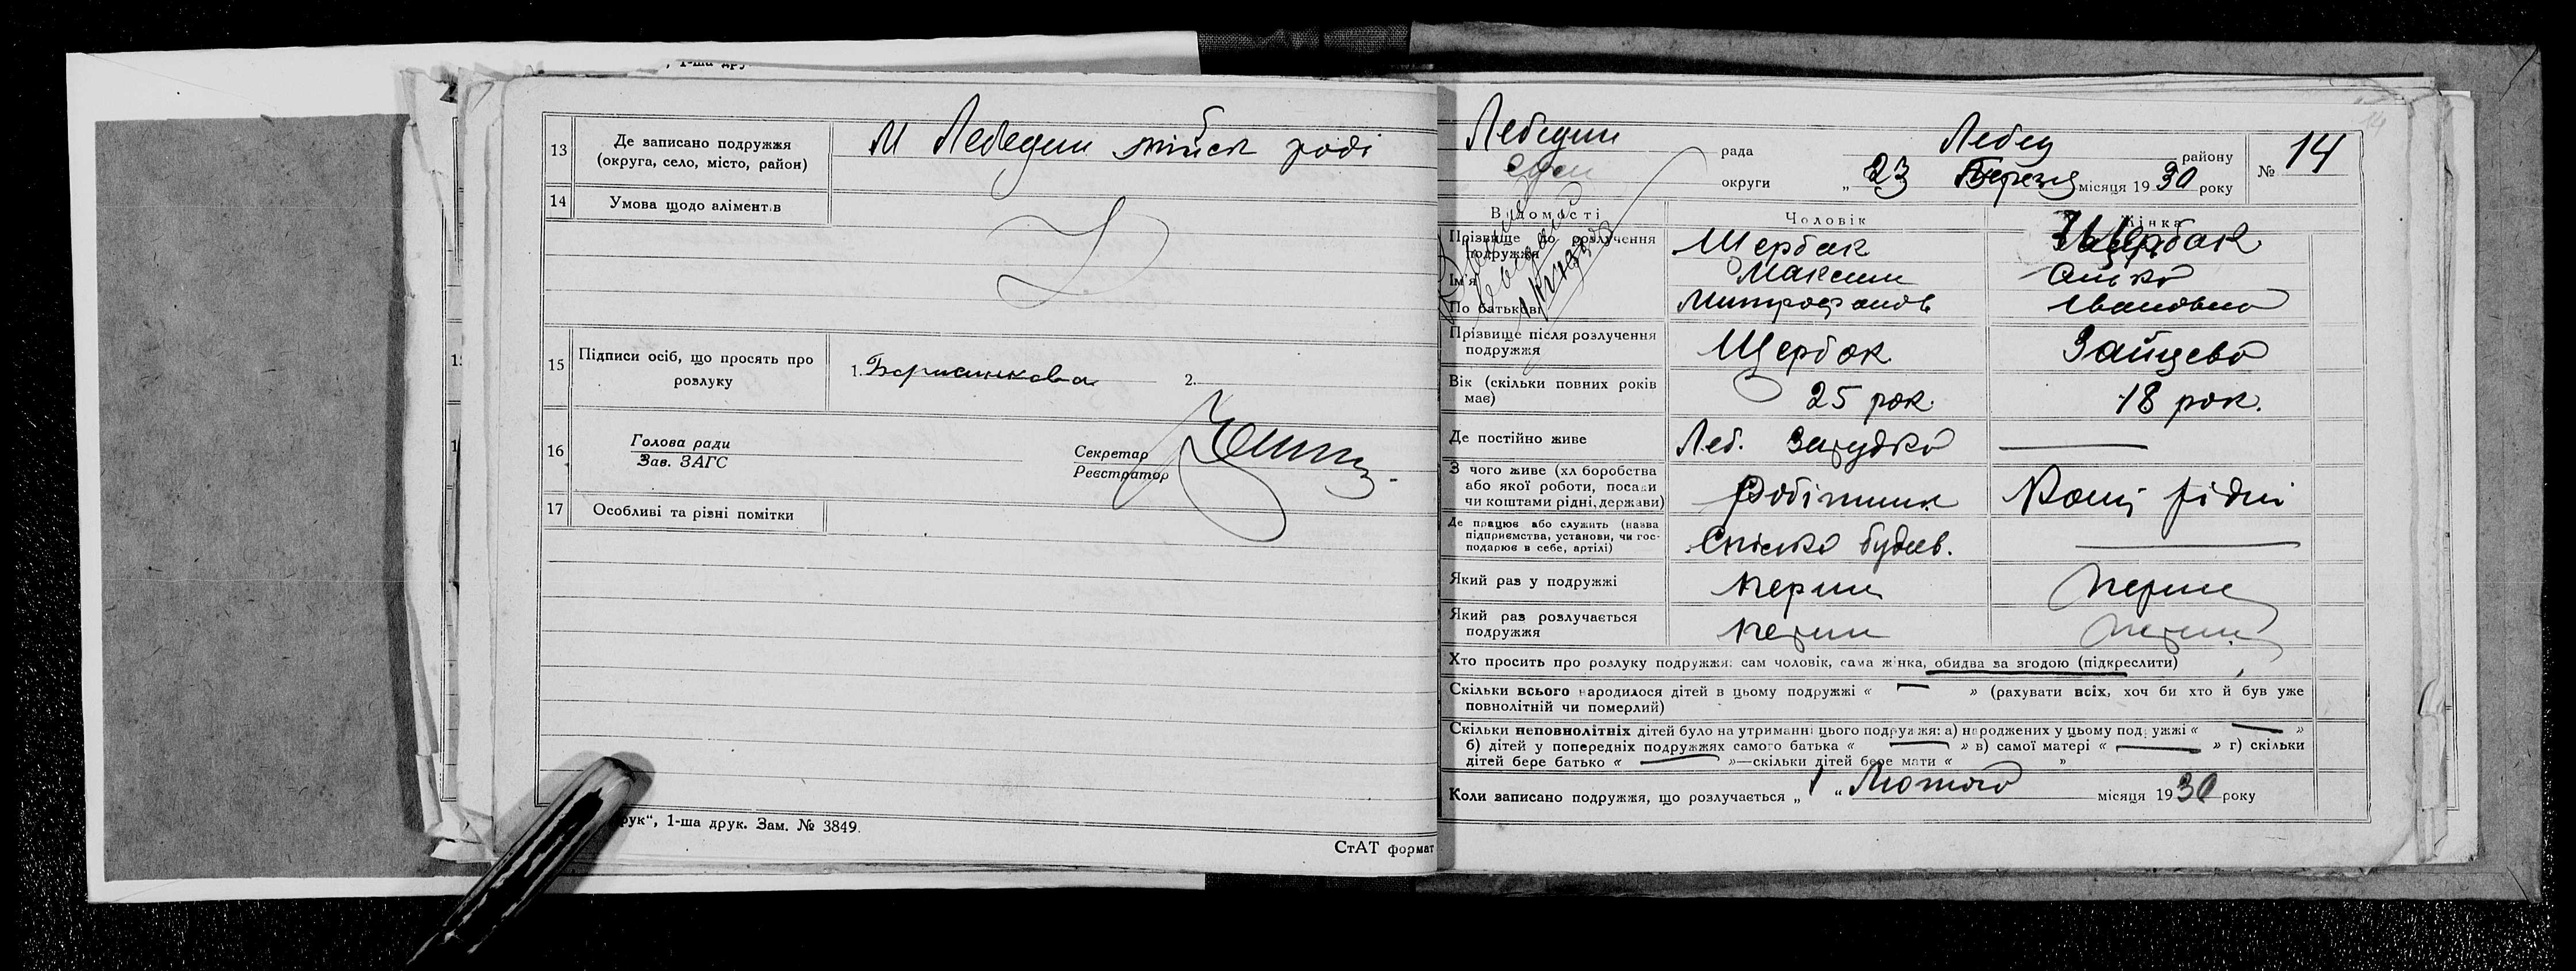 , 1-ша дру
13 Де записано подружжя (округа, село, місто, район) М Лебедин міськ раді
14 Умова щодо аліментів
15 Підписи осіб, що просять про розлуку 1. 2.
16 Голова ради Зав. ЗАГС Секретар Реєстратор
17 Особливі та різні помітки
рук“, 1-ша друк. Зам. № 3849.
СтАТ формат
14
Лебедин рада Лебед району № 14
Сум округи „ 23 Березня місяця 1930 року
Відомості Чоловік Жінка
Прізвище до розлучення подружжя Щербак Щербак
Ім'я Максим
По батькові Митрофанов Івановна
Прізвище після розлучення подружжя Щербак Зайцева
Вік (скільки повних років має) 25 рок. 18 рок.
Де постійно живе Леб. —
З чого живе (хліборобства або якої роботи, посади чи коштами рідні, держави) Робітник Кошт рідні
Де працює або служить (назва підприємства, установи, чи господарює в себе, артілі) Спілка будів. —
Який раз у подружжі перши перши
Який раз розлучається подружжя перши перши
Хто просить про розлуку подружжя: сам чоловік, сама жінка, обидва за згодою (підкреслити)
Скільки всього народилося дітей в цьому подружжі « — » (рахувати всіх, хоч би хто й був уже
повнолітній чи померлий)
Скільки неповнолітніх дітей було на утриманні цього подружжя: а) народжених у цьому подружжі « — »
б) дітей у попередніх подружжях самого батька « — » в) самої матері « — » г) скільки
дітей бере батько « — »—скільки дітей бере мати « »
Коли записано подружжя, що розлучається „ 1 “ Лютого місяця 1930 року